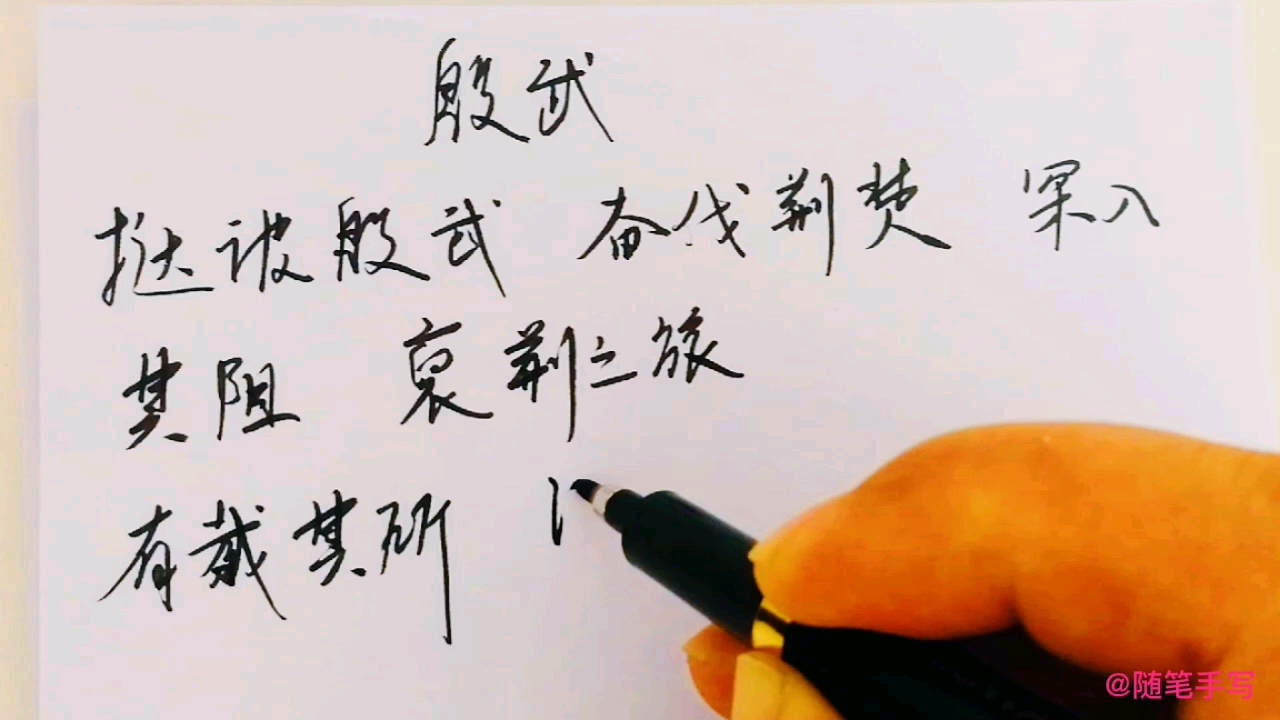 殷武
挞彼殷武 奋伐荆楚 罙入
其阻 裒荆之旅
有截其所
@随笔手写